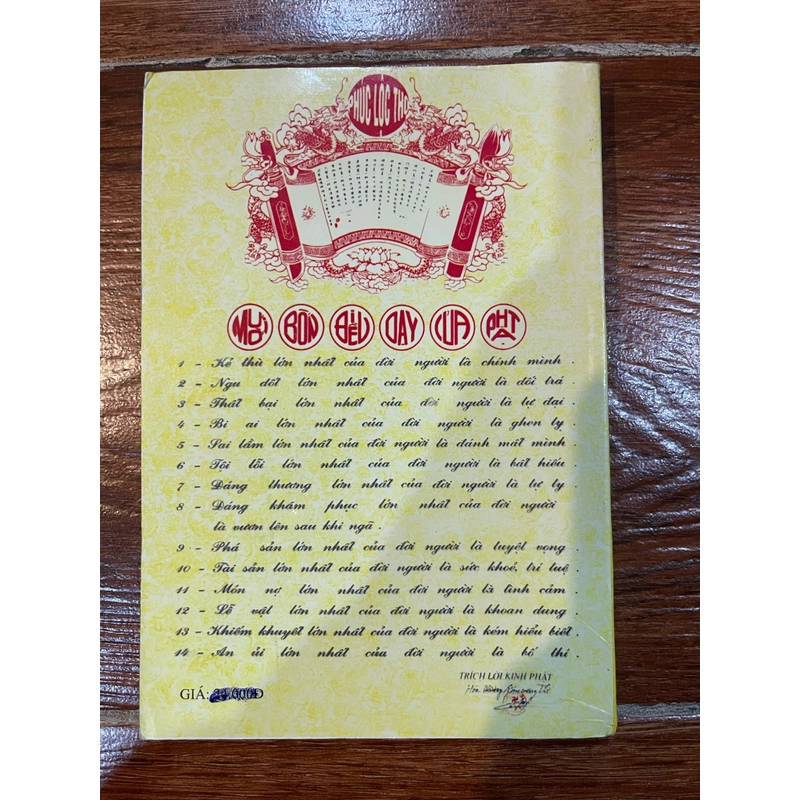 PHÚC LỘC THỌ
MƯỜI BỐN ĐIỀU DẠY CỦA PHẬT
1 - Kẻ thù lớn nhất của đời người là chính mình .
2 - Ngu dốt lớn nhất của đời người là dối trá .
3 - Thất bại lớn nhất của đời người là tự đại .
4 - Bi ai lớn nhất của đời người là ghen tỵ .
5 - Sai lầm lớn nhất của đời người là đánh mất mình .
6 - Tội lỗi lớn nhất của đời người là bất hiếu .
7 - Đáng thương lớn nhất của đời người là tự ty .
8 - Đáng khâm phục lớn nhất của đời người
là vươn lên sau khi ngã .
9 - Phá sản lớn nhất của đời người là tuyệt vọng .
10 - Tài sản lớn nhất của đời người là sức khoẻ, trí tuệ .
11 - Món nợ lớn nhất của đời người là tình cảm .
12 - Lễ vật lớn nhất của đời người là khoan dung .
13 - Khiếm khuyết lớn nhất của đời người là kém hiểu biết .
14 - An ủi lớn nhất của đời người là bố thí .
TRÍCH LỜI KINH PHẬT
GIÁ: